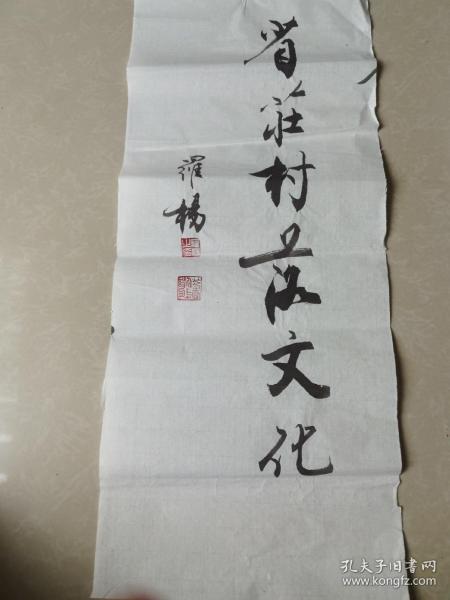 省莊村落文化
羅楊
孔夫子旧书网
www.kongfz.com